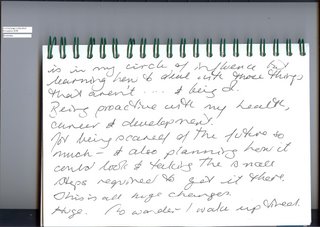 is in my circle of influence but
learning how to deal with those things
that aren't ... & being ok.
Being proactive with my health,
career & development.
Not being scared of the future so
much - & also planning how it
could look & taking the small
steps required to get it there.
This is all huge changes.
Huge. No wonder I wake up tired.